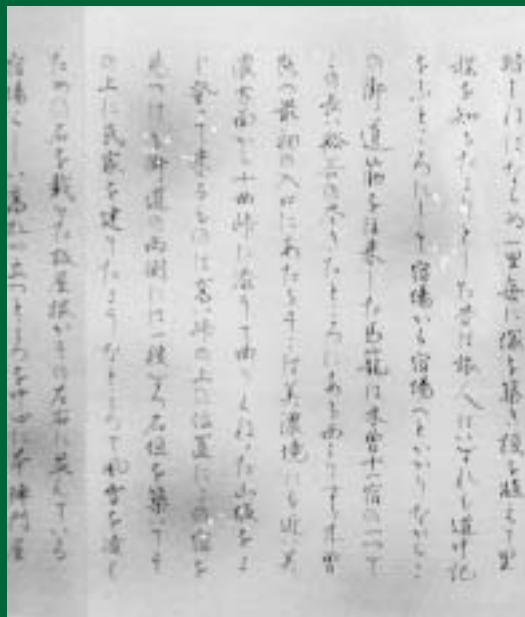 になるため一里毎に塚を築き榎を植えて里
程を知るたよりとした昔は旅人はいずれも道中記
をふところにして宿場から宿場へとかかりながらこ
の街道筋を往来した馬籠は木曽十一宿の一つで
この長い谿谷の尽きたところにある西よりする木曽
路の最初の入口にあたるそこは美濃境にも近い美
濃方面から十曲峠に添うて曲りくねった山坂をよ
じ登って来るものは高い峠の上の位置にこの宿を
見つける街道の両側には一段ずつ石垣を築いてそ
の上に民家を建てたようなところで風雪を凌ぐ
ための石を載せた板屋根がその左右に並んでいる
宿場らしい高札の立つところを中心に本陣問屋